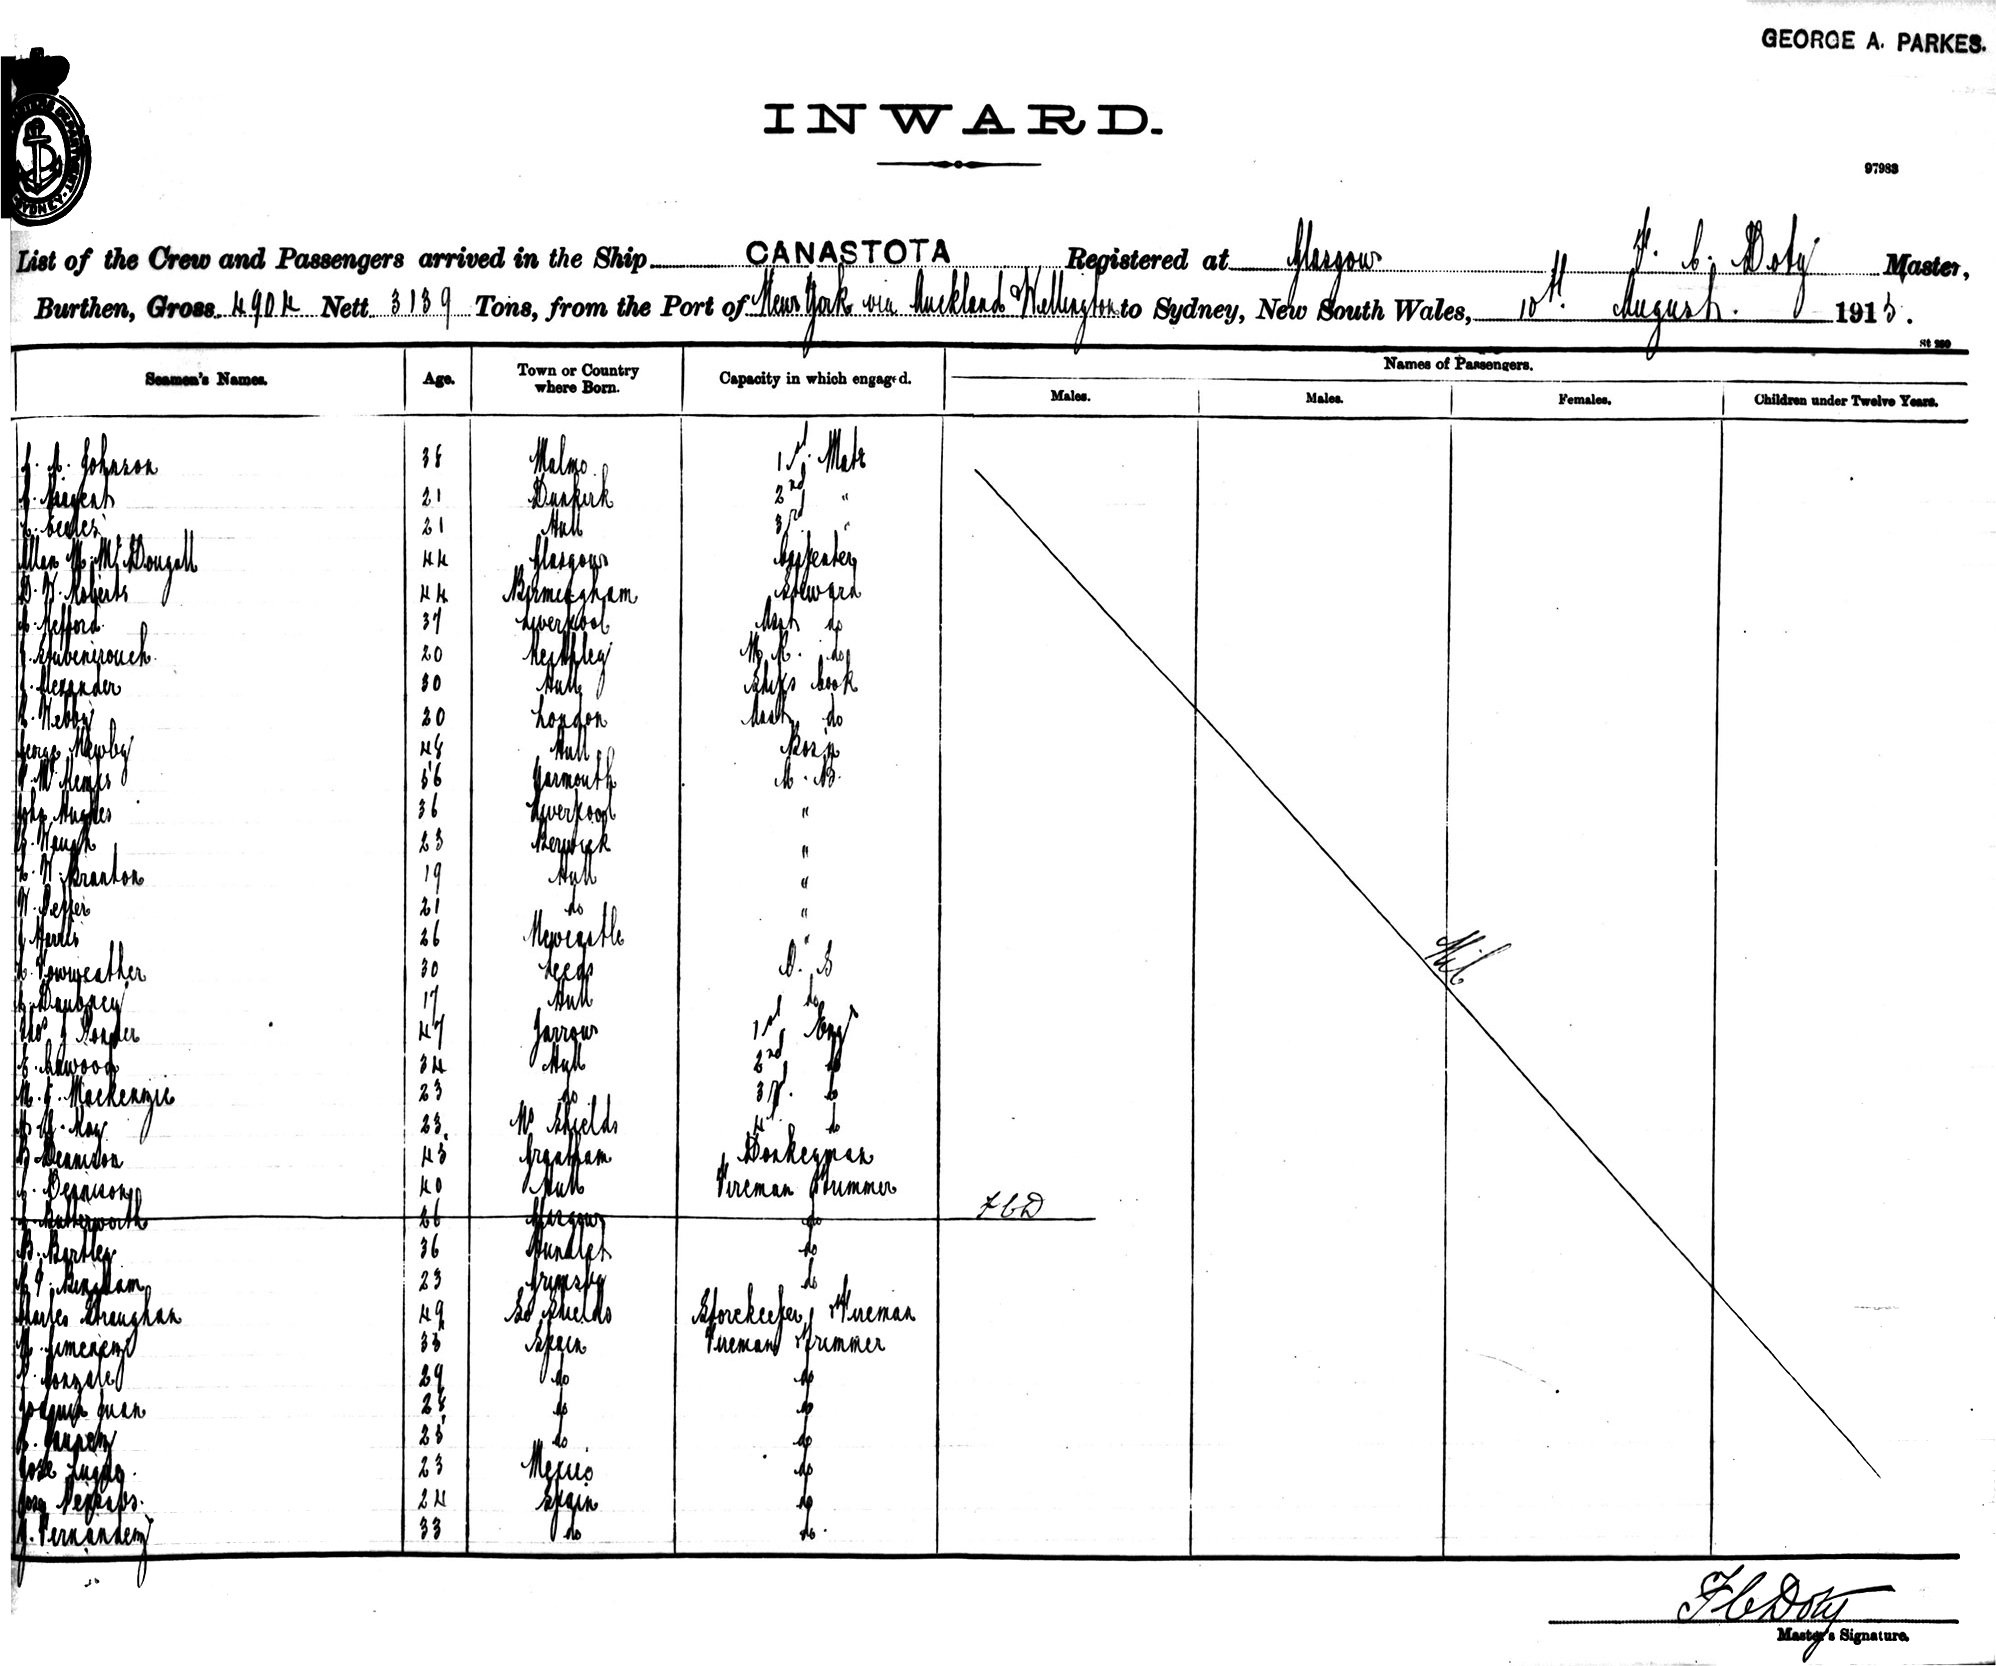 GEORGE A. PARKES.
INWARD.
97983
List of the Crew and Passengers arrived in the Ship CANASTOTA Registered at Glasgow F. C. Doty Master,
Burthen, Gross 4904 Nett 3139 Tons, from the Port of New York via Auckland & Wellington to Sydney, New South Wales, 10th August. 1915.
St 280
Seamen's Names. Age. Town or Country where Born. Capacity in which engaged. Names of Passengers.
Males. Males. Females. Children under Twelve Years.
Johnson 38 Malmo 1st Mate
Sargent 21 Dunkirk 2nd "
Eccles 21 Hull 3rd "
Allan McDougall 44 Glasgow Carpenter
D. W. Roberts 44 Birmingham Steward
Hefford 37 Liverpool Asst do
20 Keithley M. R. do
Alexander 30 Hull Ships Cook
20 London Asst do
George Newby 48 Hull Bosn
56 Yarmouth A. B.
John Hughes 36 Liverpool "
Waugh 23 Berwick "
W. Branton 19 Hull "
21 do "
Harris 26 Newcastle "
Fowweather 30 Leeds O. S
Daubney 17 Hull do
Thos J 47 Jarrow 1st Eng
34 Hull 2nd do
Mackenzie 23 do 3rd. do
May 23 No Shields 4th do
Dennison 43 Grantham Donkeyman
Dennison 40 Hull Fireman & Trimmer
Butterworth 26 Glasgow do FCD
B. Bartley 36 Hunslet do
Bingham 23 Grimsby do
Charles Straughan 49 So Shields Storekeeper & Fireman
Jimenez 33 Spain Fireman & Trimmer
29 do do
Joaquin Juan 28 do do
23 do do
Jose 23 Mexico do
24 Spain do
Fernandez 33 do do.
Nil
F C Doty
Master's Signature.